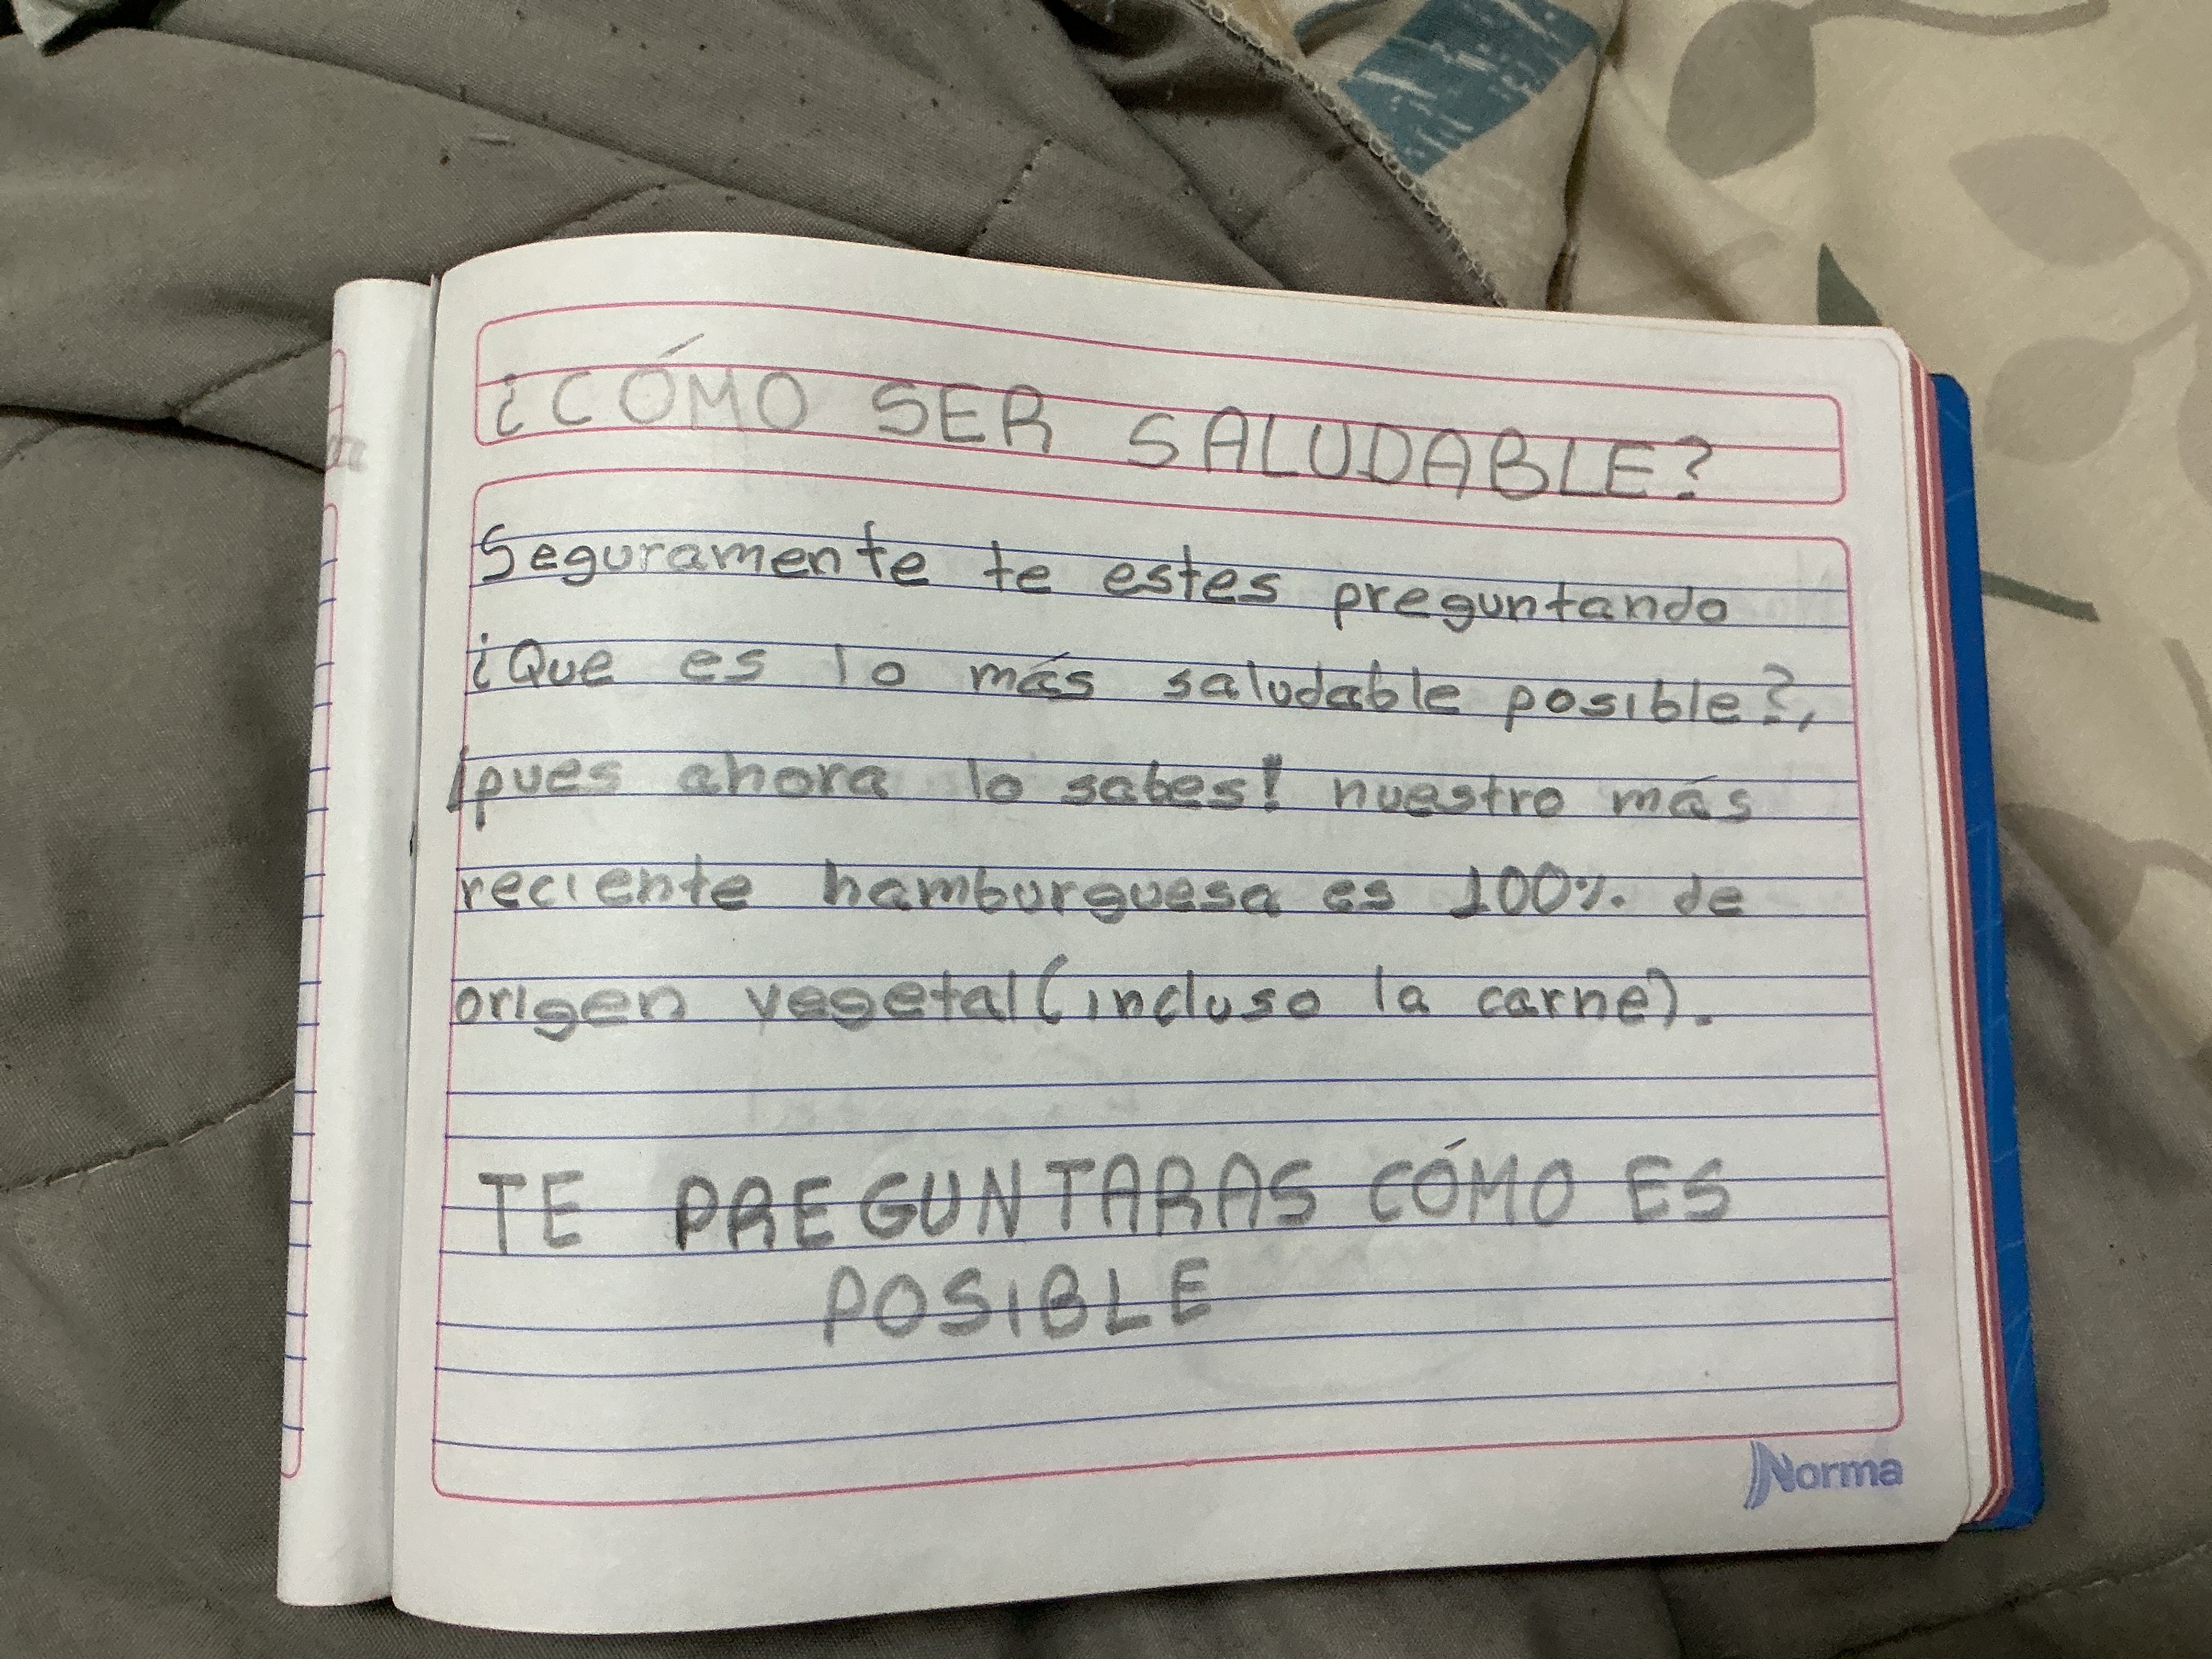 ¿CÓMO SER SALUDABLE?
Seguramente te estes preguntando
¿Que es lo más saludable posible?,
¡pues ahora lo sabes! nuestro más
reciente hamburguesa es 100% de
origen vegetal (incluso la carne).
TE PREGUNTARAS CÓMO ES
POSIBLE
Norma